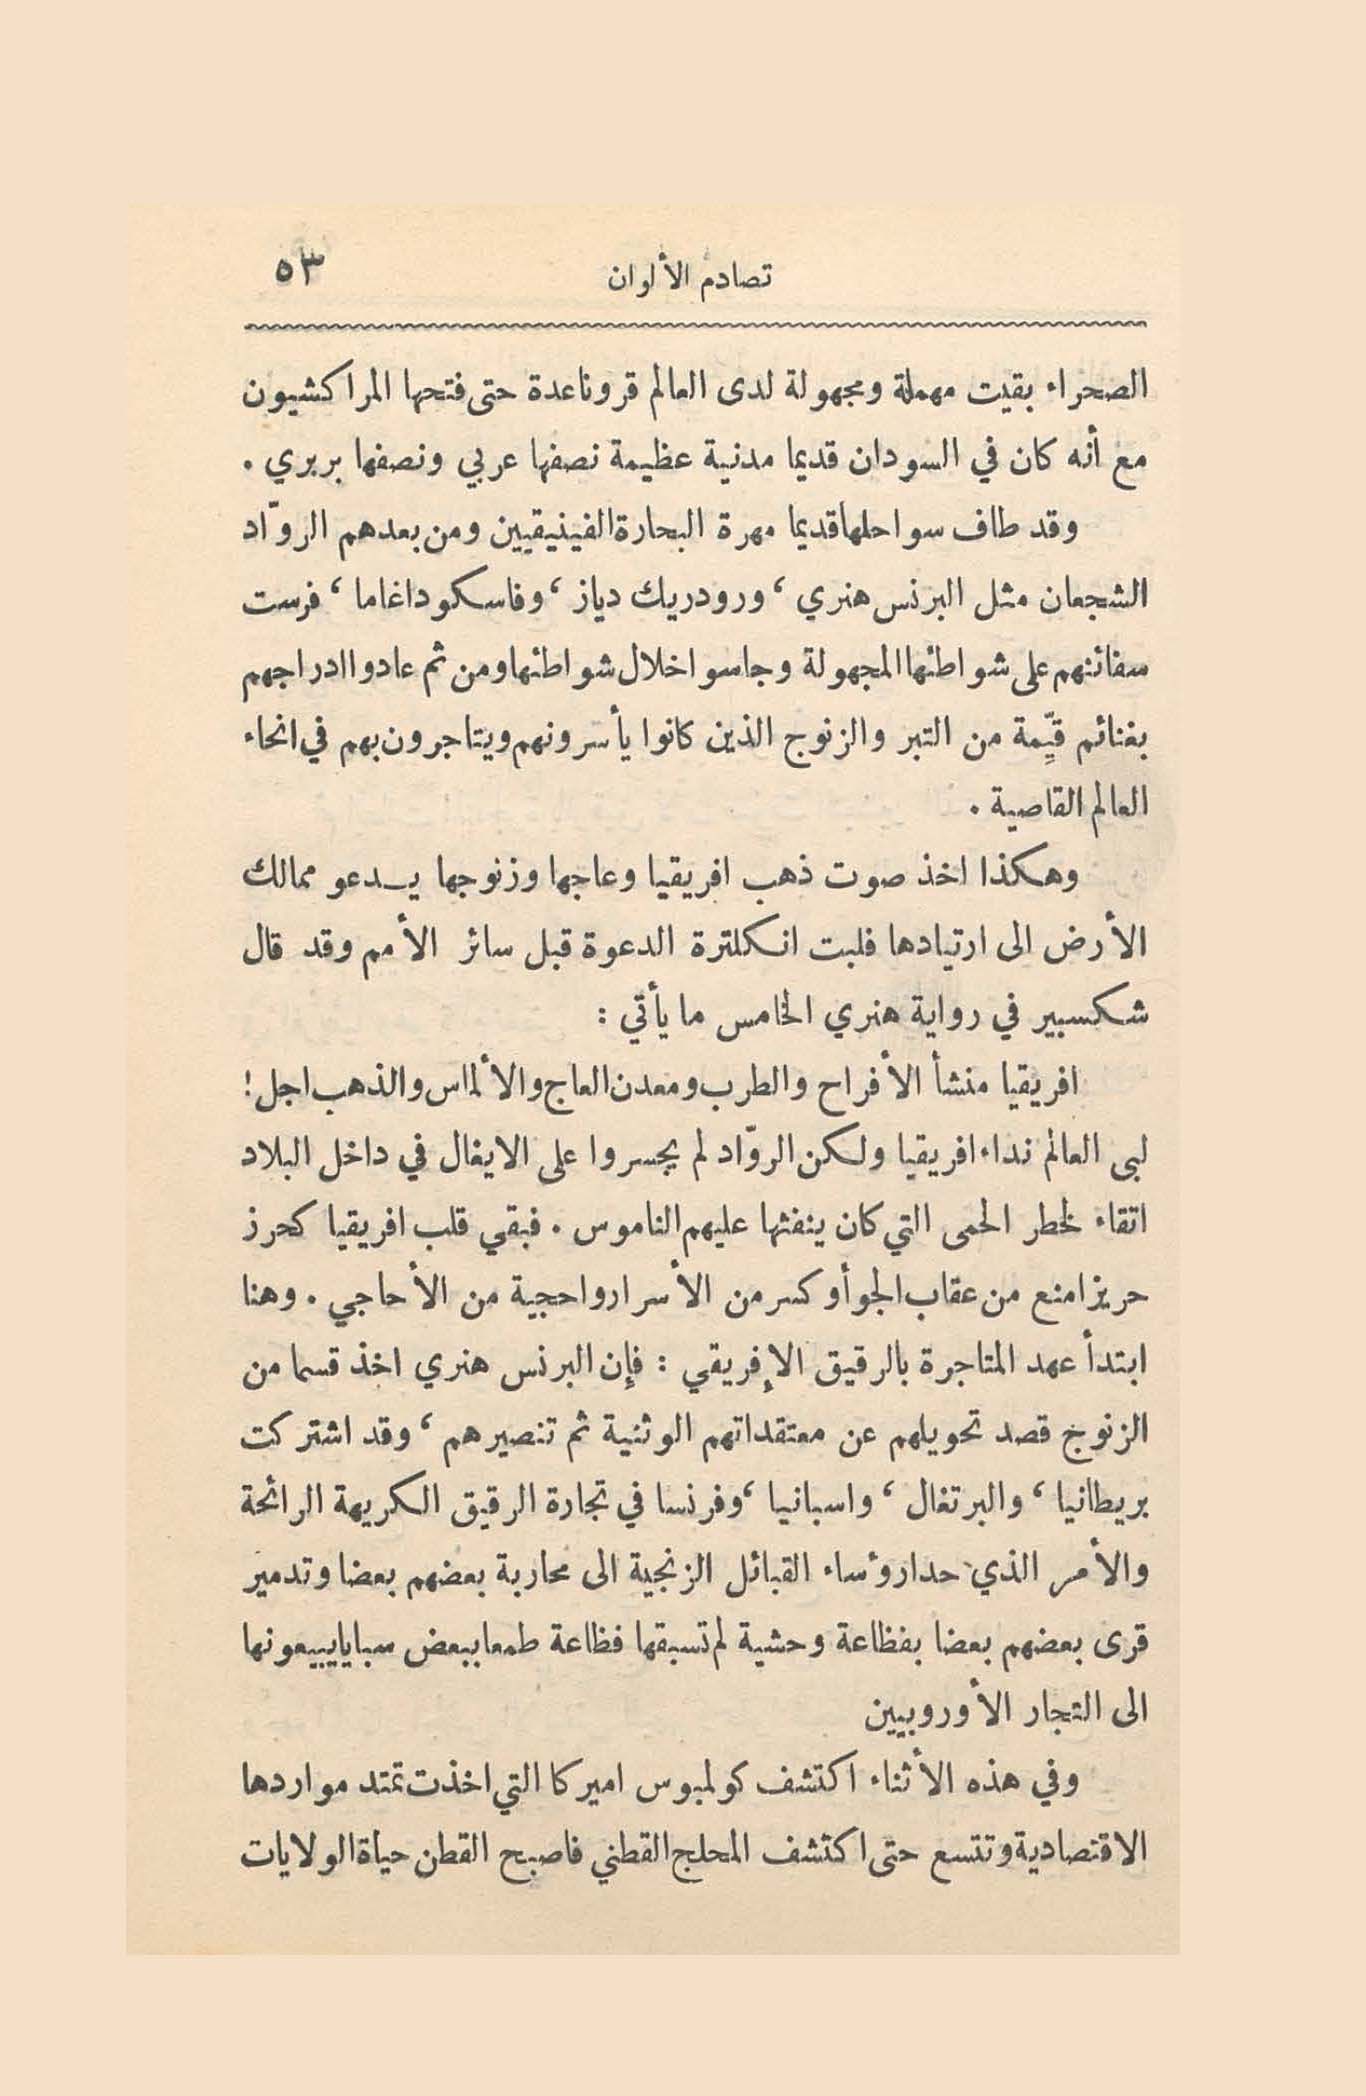 تصادم الألوان ٥٣
الصحراء بقيت مهملة ومجهولة لدى العالم قرونا عدة حتى فتحها المراكشيون
مع أنه كان في السودان قديما مدنية عظيمة نصفها عربي ونصفها بربري .
وقد طاف سواحلها قديما مهرة البحارة الفينيقيين ومن بعدهم الروّاد
الشجعان مثل البرنس هنري ، ورودريك دياز ، وفاسكو داغاما ، فرست
سفائنهم على شواطئها المجهولة وجاسوا خلال شواطئها ومن ثم عادوا ادراجهم
بغنائم قيِّمة من التبر والزنوج الذين كانوا يأسرونهم ويتاجرون بهم في انحاء
العالم القاصية .
وهكذا اخذ صوت ذهب افريقيا وعاجها وزنوجها يدعو ممالك
الأرض الى ارتيادها فلبت انكلترة الدعوة قبل سائر الأمم وقد قال
شكسبير في رواية هنري الخامس ما يأتي :
افريقيا منشأ الأفراح والطرب ومعدن العاج والألماس والذهب اجل !
لبى العالم نداء افريقيا ولكن الروّاد لم يجسروا على الايغال في داخل البلاد
اتقاء لخطر الحمى التي كان ينفثها عليهم الناموس . فبقي قلب افريقيا كحرز
حريز امنع من عقاب الجو أو كسر من الأسرار واحجية من الأحاجي . وهنا
ابتدأ عهد المتاجرة بالرقيق الإفريقي : فإن البرنس هنري اخذ قسما من
الزنوج قصد تحويلهم عن معتقداتهم الوثنية ثم تنصيرهم ، وقد اشتركت
بريطانيا ، والبرتغال ، واسبانيا ، وفرنسا في تجارة الرقيق الكريهة الرائحة
والأمر الذي حدا رؤساء القبائل الزنجية الى محاربة بعضهم بعضا وتدمير
قرى بعضهم بعضا بفظاعة وحشية لم تسبقها فظاعة طمعا ببعض سبايا يبيعونها
الى التجار الأوروبيين
وفي هذه الأثناء اكتشف كولمبوس اميركا التي اخذت تمتد مواردها
الاقتصادية وتتسع حتى اكتشف المحلج القطني فاصبح القطن حياة الولايات